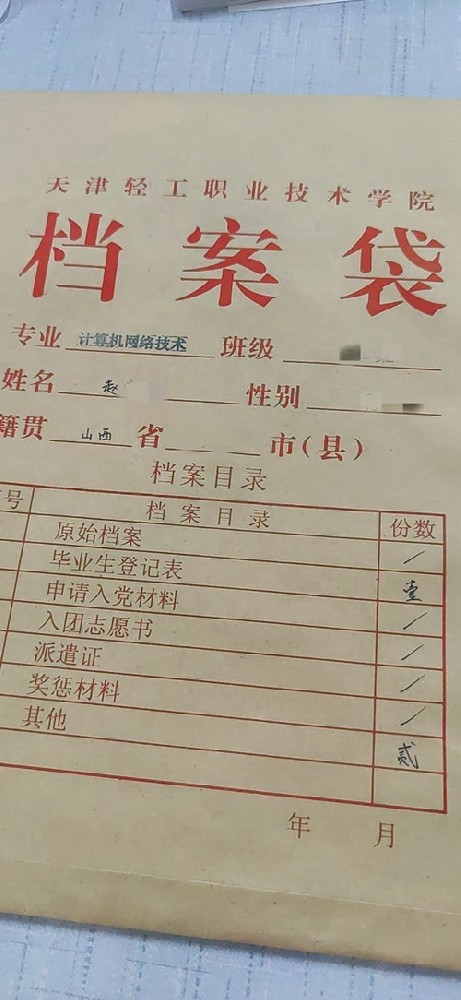 天津轻工职业技术学院
档案袋
专业 计算机网络技术 班级
姓名 赵 性别
籍贯 山西 省 市(县)
档案目录
号 档案目录 份数
原始档案 /
毕业生登记表 壹
申请入党材料 /
入团志愿书 /
派遣证 /
奖惩材料 /
其他 贰
年 月